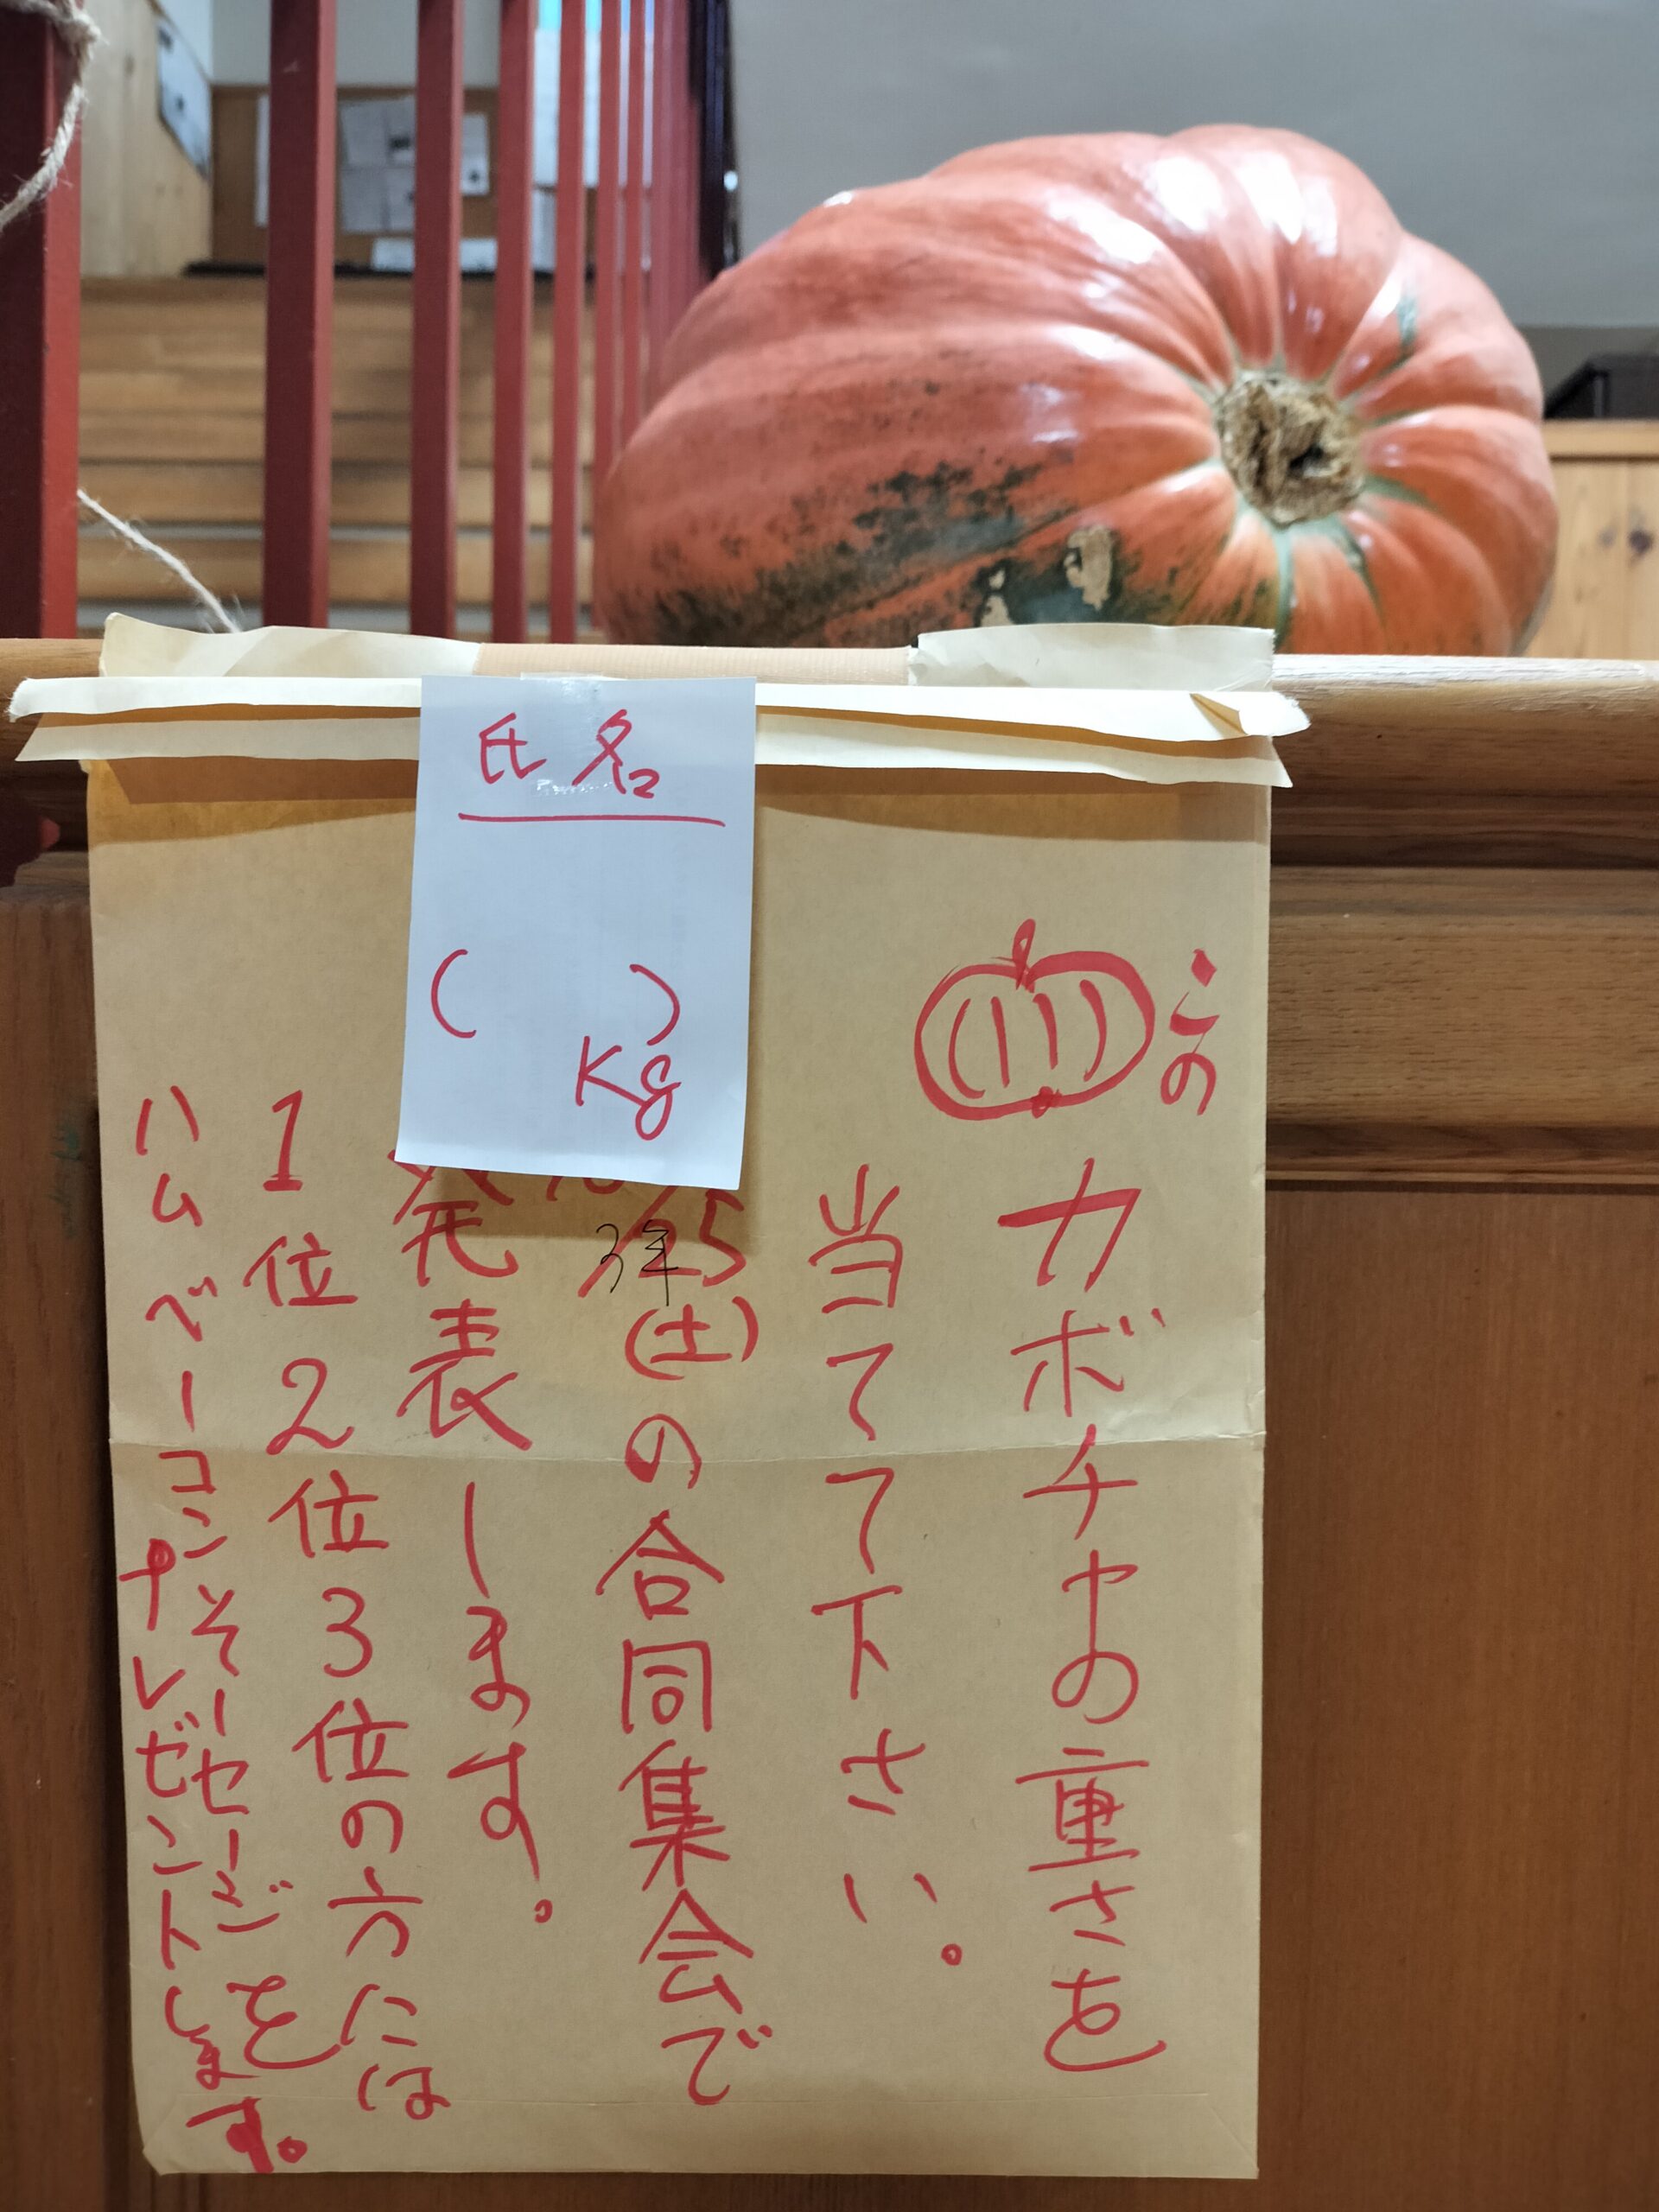 氏名
( )
Kg
この
カボチャの重さを
当てて下さい。
10/25
(土)の合同集会で
発表します。
1位2位3位の方には
ハムベーコンそーセージを
プレゼントします。